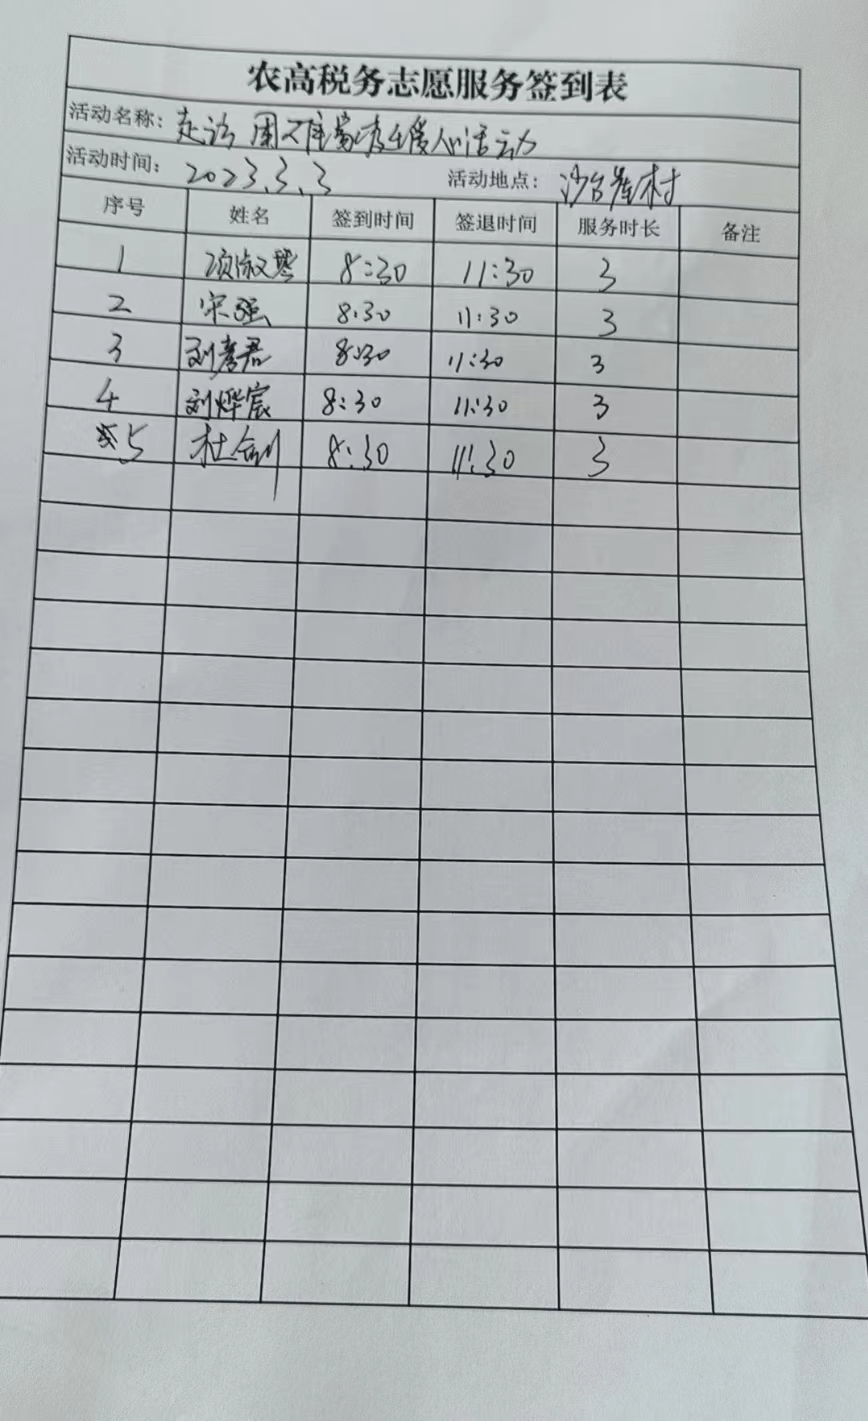 农高税务志愿服务签到表
活动名称: 走访 困难 群众 暖人心活动
活动时间: 2023.3.3 活动地点: 沙台崖村
序号 姓名 签到时间 签退时间 服务时长 备注
1 项淑琴 8:30 11:30 3
2 宋强 8:30 11:30 3
3 刘彦君 8:30 11:30 3
4 刘烨宸 8:30 11:30 3
5 杜剑 8:30 11:30 3